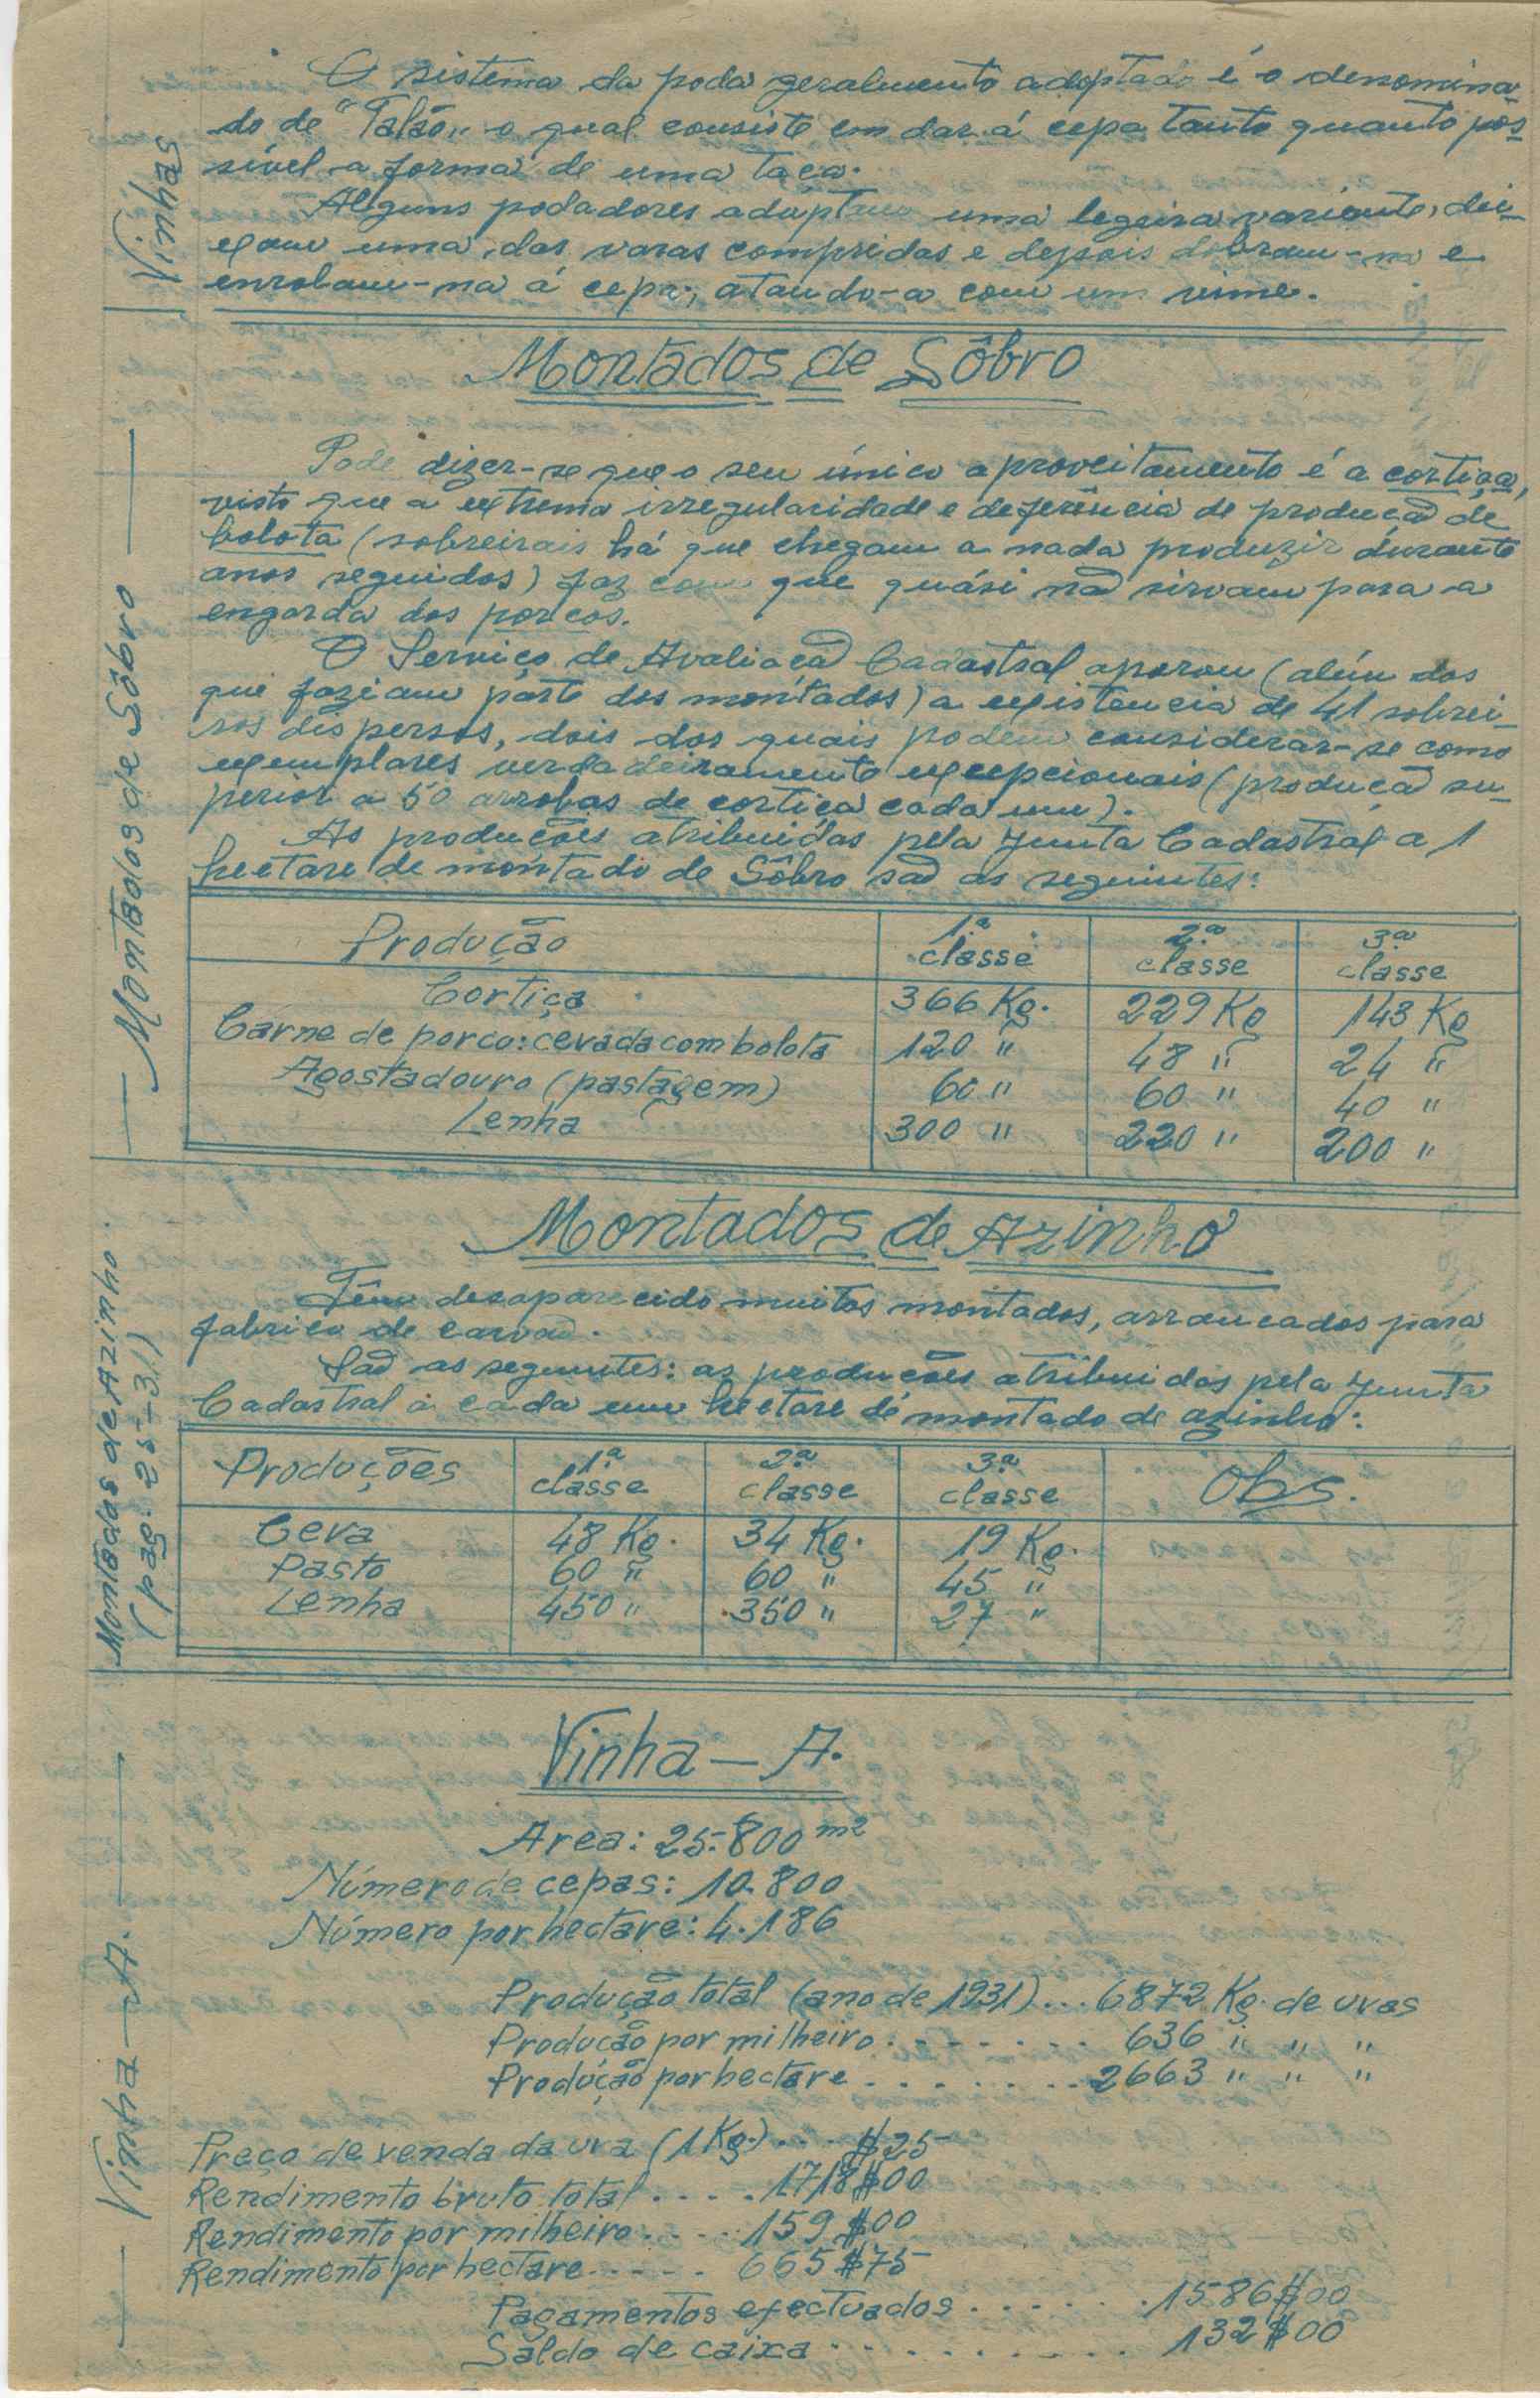 O sistema da poda geralmente adoptado é o denomina-
do de "Talão" o qual consiste em dar á cepa tanto quanto pos-
sível a forma de uma taça.
Alguns podadores adoptam uma legeira variante, dei-
xam uma das varas compridas e depois dobram-na e
enrolam-na á cepa, atando-a com um vime.
Vinhas
Montados de Sôbro
Pode dizer-se que o seu único aproveitamento é a cortiça,
visto que a extrema irregularidade e deferência de produção de
bolota (sobreirais há que chegam a nada produzir durante
anos seguidos) faz com que quási não sirvam para a
engorda dos porcos.
O Serviço de Avaliação Cadastral aporou (além dos
que faziam parte dos montados) a existência de 41 sobrei-
ros dispersos, dois dos quais podem considerar-se como
exemplares verdadeiramente excepcionais (produção su-
perior a 50 arrobas de cortiça cada um).
As produções atribuidas pela Junta Cadastral a 1
hectare de montado de Sôbro são as seguintes:
— Montados de Sôbro —
Produção 1.ª classe 2.ª classe 3.ª classe
Cortiça 366 Kg. 229 Kg 143 Kg
Carne de porco: cevada com bolota 120 " 48 " 24 "
Agostadouro (pastagem) 60 " 60 " 40 "
Lenha 300 " 220 " 200 "
Montados de Azinho
Têm desaparecido muitos montados, arrancados para
fabrico de carvão.
São as seguintes: as produções atribuidas pela Junta
Cadastral a cada um hectare de montado de azinho:
Montados de Azinho.
(pág. 25-31)
Produções 1.ª classe 2.ª classe 3.ª classe Obs.
Ceva 48 Kg. 34 Kg. 19 Kg.
Pasto 60 " 60 " 45 "
Lenha 450 " 350 " 27 "
Vinha — A.
Area: 25.800 m2
Número de cepas: 10.800
Número por hectare: 4.186
Produção total (ano de 1931)... 6872 Kg. de uvas
Produção por milheiro........ 636 " " "
Produção por hectare........ 2663 " " "
Preço de venda da uva (1 Kg.).... $25
Rendimento bruto total..... 1718$00
Rendimento por milheiro..... 159$00
Rendimento por hectare..... 665$75
Pagamentos efectuados....... 1586$00
Saldo de caixa........... 132$00
— Vinha — A. —